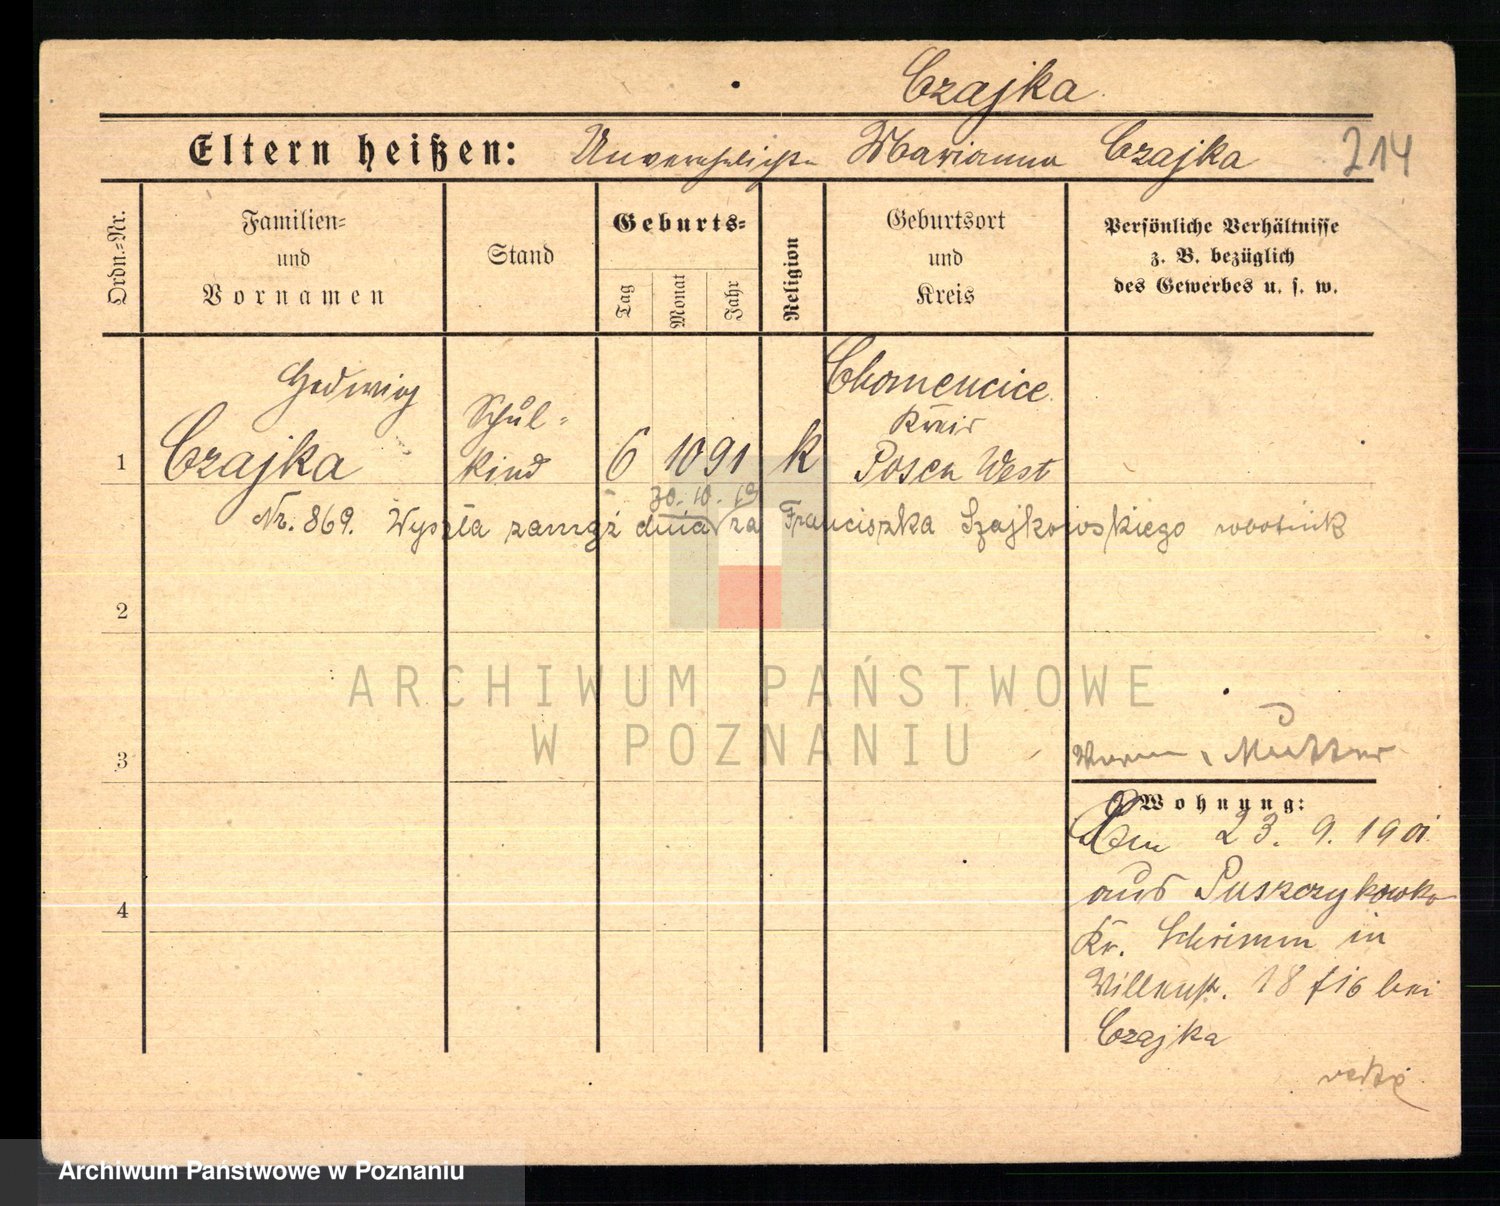 Czajka
Eltern heißen: Unverehelichte Marianna Czajka 214
Ordn.-Nr.
Familien- und Vornamen
Stand
Geburts-
Tag Monat Jahr
Religion
Geburtsort und Kreis
Persönliche Verhältnisse z. B. bezüglich des Gewerbes u. s. w.
Hedwig
1 Czajka
Schul-
kind
6 10 91 k
Chomencice
Kreis
Posen West
30.10.19
Nr. 869. Wyszła zamąż dnia za Franciszka Szajkowskiego robotnik
2
3
Mutter
Wohnung:
23. 9. 1901
aus Puszczykowko
Kr. Schrimm in
18 bei
Czajka
4
ARCHIWUM PAŃSTWOWE
W POZNANIU
Archiwum Państwowe w Poznaniu